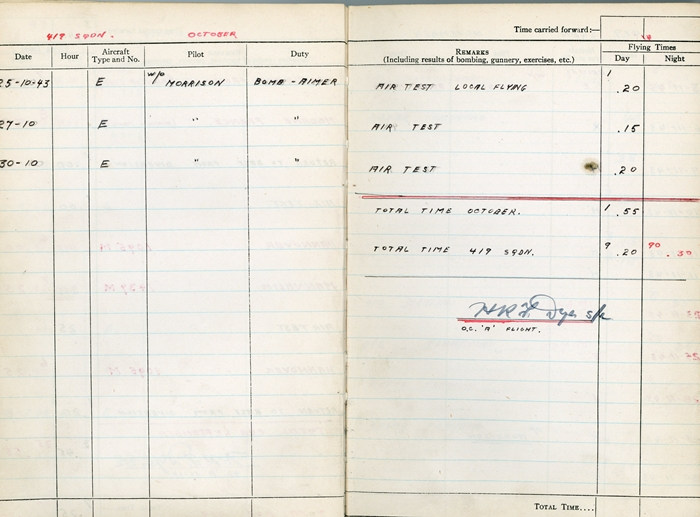 419 SQDN. OCTOBER
Date Hour Aircraft Type and No. Pilot Duty
25-10-43 E W/O MORRISON BOMB-AIMER
27-10 E " "
30-10 E " "
Time carried forward:—
REMARKS
(Including results of bombing, gunnery, exercises, etc.)
Flying Times
Day Night
AIR TEST LOCAL FLYING 1 .20
AIR TEST .15
AIR TEST .20
TOTAL TIME OCTOBER. 1 .55
TOTAL TIME 419 SQDN. 9 .20 90 .30
Dyer S/L
O.C. 'A' FLIGHT.
TOTAL TIME....